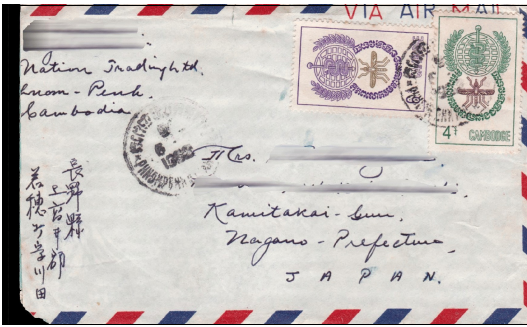 VIA AIR MAIL
Nation Trading Ltd.
Pnom-Penh.
Cambodia
4
CAMBODGE
Mrs.
Kamitakai-Gun,
Nagano-Prefecture
JAPAN.
長野縣
上高井郡
若穂町字川田